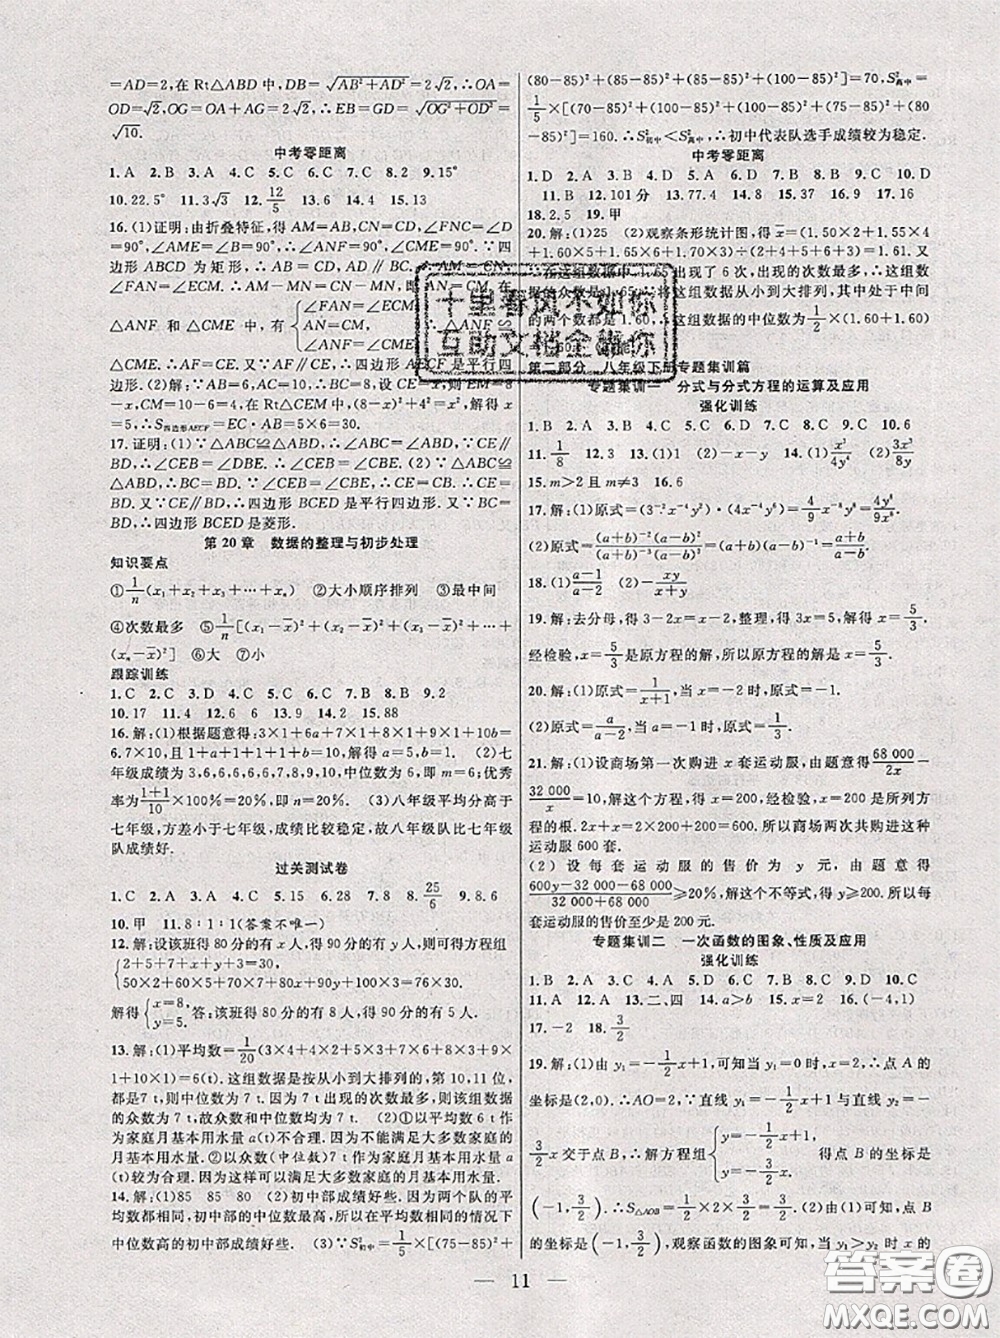 =AD=2,在 Rt△ABD 中,DB=√(AB²+AD²)=2√2,∴OA=
OD=√2,∴OG=OA+AG=2√2,∴EB=GD=√(OG²+OD²)=
√10.
中考零距离
1.A 2.B 3.A 4.C 5.C 6.C 7.C 8.2 9.15°
10.22.5° 11.3√3 12.12/5 13.6 14.4 15.13
16.(1)证明:由折叠特征,得 AM=AB,CN=CD,∠FNC=∠D
=90°,∠AME=∠B=90°,∴∠ANF=90°,∠CME=90°.∵四
边形 ABCD 为矩形,∴AB=CD,AB∥CD,∴AM=CN,
∠FAN=∠ECM,∴AM-MN=CN-MN,即 AN=CM.在
△ANF 和△CME 中,∵{∠FAN=∠ECM, AN=CM, ∠ANF=∠CME,
△CME.∴AF=CE.∴四边形 AECF 是平行四
8-x.在 Rt△CEM 中,(8-x)²+4²=x²,解得 x
=5,∴S四边形AECF=EC·AB=5×6=30.
17.证明:(1)∵△ABC≌△ABD,∴∠ABC=∠ABD.∵CE∥
BD,∴∠CEB=∠DBE.∴∠CEB=∠CBE.(2)∵△ABC≌
△ABD,∴BC=BD.∵∠CEB=∠CBE,∴CE=CB.∴CE=
BD.又∵CE∥BD,∴四边形 BCED 是平行四边形.又∵BC=
BD,∴四边形 BCED 是菱形.
第 20 章 数据的整理与初步处理
知识要点
①1/n(x₁+x₂+x₃+…+xₙ) ②大小顺序排列 ③最中间
④次数最多 ⑤1/n[(x₁-x̄)²+(x₂-x̄)²+(x₃-x̄)²+…+
(xₙ-x̄)²] ⑥大 ⑦小
跟踪训练
1.C 2.C 3.D 4.C 5.B 6.A 7.B 8.B 9.2
10.17 11.4 12.6 6 13.9 14.2 15.88
16.解:(1)根据题意得:3×1+6a+7×1+8×1+9×1+10b=
6.7×10,且 1+a+1+1+1+b=10,解得 a=5,b=1. (2)七
年级成绩为 3,6,6,6,6,6,7,8,9,10,中位数为 6,即 m=6;优秀
率为(1+1)/10×100%=20%,即 n=20%. (3)八年级平均分高于
七年级,方差小于七年级,成绩比较稳定,故八年级队比七年级
队成绩好.
过关测试卷
1.C 2.A 3.A 4.C 5.15 6.2 7.8 8.25/6 9.8.6
10.甲 11.8∶1∶1(答案不唯一)
12.解:设该班得 80 分的有 x 人,得 90 分的有 y 人,则可得方程组
{2+5+7+x+y+3=30, 50×2+60×5+70×7+80x+90y+100×3=76×30,
解得{x=8, y=5. 答:该班得 80 分的有 8 人,得 90 分的有 5 人.
13.解:(1)平均数=1/20(3×4+4×2+5×3+7×5+8×4+9×
1+10×1)=6(t).这组数据是按从小到大排列的,第 10,11 位,
都是7 t,则中位数是7 t.因为数据7 t出现的次数最多,则该组数据
的众数为7 t,故众数和中位数均为7 t. (2)①以平均数 6 t 作
为家庭月基本用水量 a(t)不合理.因为不能满足大多数家庭的
月基本用水量.②以众数(中位数)7 t 作为家庭月基本用水量 a
(t)合理.因为这样可以满足大多数家庭的月基本用水量.
14.解:(1)85 85 80 (2)初中部成绩好些.因为两个队的平
均数都相同,初中部的中位数高,所以在平均数相同的情况下
中位数高的初中部成绩好些. (3)∵S²初中=1/5×[(75-85)²+
(80-85)²+(85-85)²+(85-85)²+(100-85)²]=70,S²高中
=1/5×[(70-85)²+(100-85)²+(100-85)²+(75-85)²+(80
-85)²]=160.∴S²初中<S²高中,∴初中代表队选手成绩较为稳定.
中考零距离
1.D 2.D 3.A 4.B 5.D 6.B 7.A 8.C 9.C 10.D
11.B 12.101 分 13.77.4 14.18 15.90 16.17 17.16
18.2,5 19.甲
20.解:(1)25 (2)观察条形统计图,得 x̄=(1.50×2+1.55×
4+1.60×5+1.65×6+1.70×3)÷(2+4+5+6+3)=1.61.
∵在这组数据中,1.65出现了 6 次,出现的次数最多,∴这组数
据的众数是1.65.∵将这组数据从小到大排列,其中处于中间
的两个数都是 1.60,∴这组数据的中位数为1/2×(1.60+1.60)
第二部分 八年级下册专题集训篇
专题集训一 分式与分式方程的运算及应用
强化训练
1.B 2.A 3.B 4.C 5.C 6.A 7.B 8.C 9.C 10.6
11.1/8 12.3 13.(1)1 (2)-x-y 14.(1)x³/4y⁴ (2)x⁷/8y
15.m>2 且 m≠3 16.6
17.解:(1)原式=(3⁻²x⁻⁴y²)·(2²x⁻⁴y⁶)=4/9 x⁻⁸y⁸=4y⁸/9x⁸.
(2)原式=(a+b)²/(a-b)²·2(a-b)/3(a+b)·3(a-b)/2(a+b)·(a+b)/a=(a+b)/a.
18.(1)(a-1)/(a-2) (2)-xy/(x+y)
19.解:去分母,得 3-2x=x-2,整理,得 3x=5,解得 x=5/3.
经检验,x=5/3是原方程的解,所以原方程的解是 x=5/3.
20.解:(1)原式=1/(x+1),当 x=-2 时,原式=-1.
(2)原式=a/(a-2),当 a=-1 时,原式=1/3.
21.解:(1)设商场第一次购进 x 套运动服,由题意得68 000/2x-
32 000/x=10,解这个方程,得 x=200,经检验,x=200 是所列方
程的根.2x+x=2×200+200=600.所以商场两次共购进这种
运动服 600 套.
(2)设每套运动服的售价为 y 元,由题意得
(600y-32 000-68 000)/(32 000+68 000)≥20%,解这个不等式,得 y≥200,所以每
套运动服的售价至少是 200 元.
专题集训二 一次函数的图象、性质及应用
强化训练
1.B 2.C 3.A 4.A 5.D 6.D 7.B 8.C 9.D 10.C
11.A 12.A 13.二、四 14.a>b 15.x=2 16.(-4,1)
17.-2 18.3/2
19.解:(1)由 y₁=-1/2x+1,可知当 y₁=0时,x=2,∴点 A 的
坐标是(2,0).∴AO=2.∵直线 y₁=-1/2x+1 与直线 y₂=-
3/2x 交于点 B,∴解方程组{y=-1/2x+1, y=-3/2x. 得点 B 的坐标是
(-1,3/2).∴S△AOB=1/2×2×3/2=3/2. (2)由(1)可知,点 B 的坐标
是(-1,3/2),观察函数的图象可知,当 y₁>y₂ 时,x 的
十里春风不如你
互助文档全靠你
11
答案圈
MXQE.COM